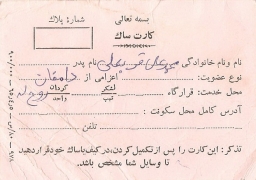 بسمه تعالی
شماره پلاک
کارت ساک
نام و نام خانوادگی نام پدر
نوع عضویت: اعزامی از دامغان
محل خدمت: قرارگاه لشکر تیپ گردان واحد روح اله
آدرس کامل محل سکونت:
تلفن
تذکر: این کارت را پس از تکمیل کردن، در کیف یا ساک خود قرار دهید
تا وسایل شما مشخص باشد.